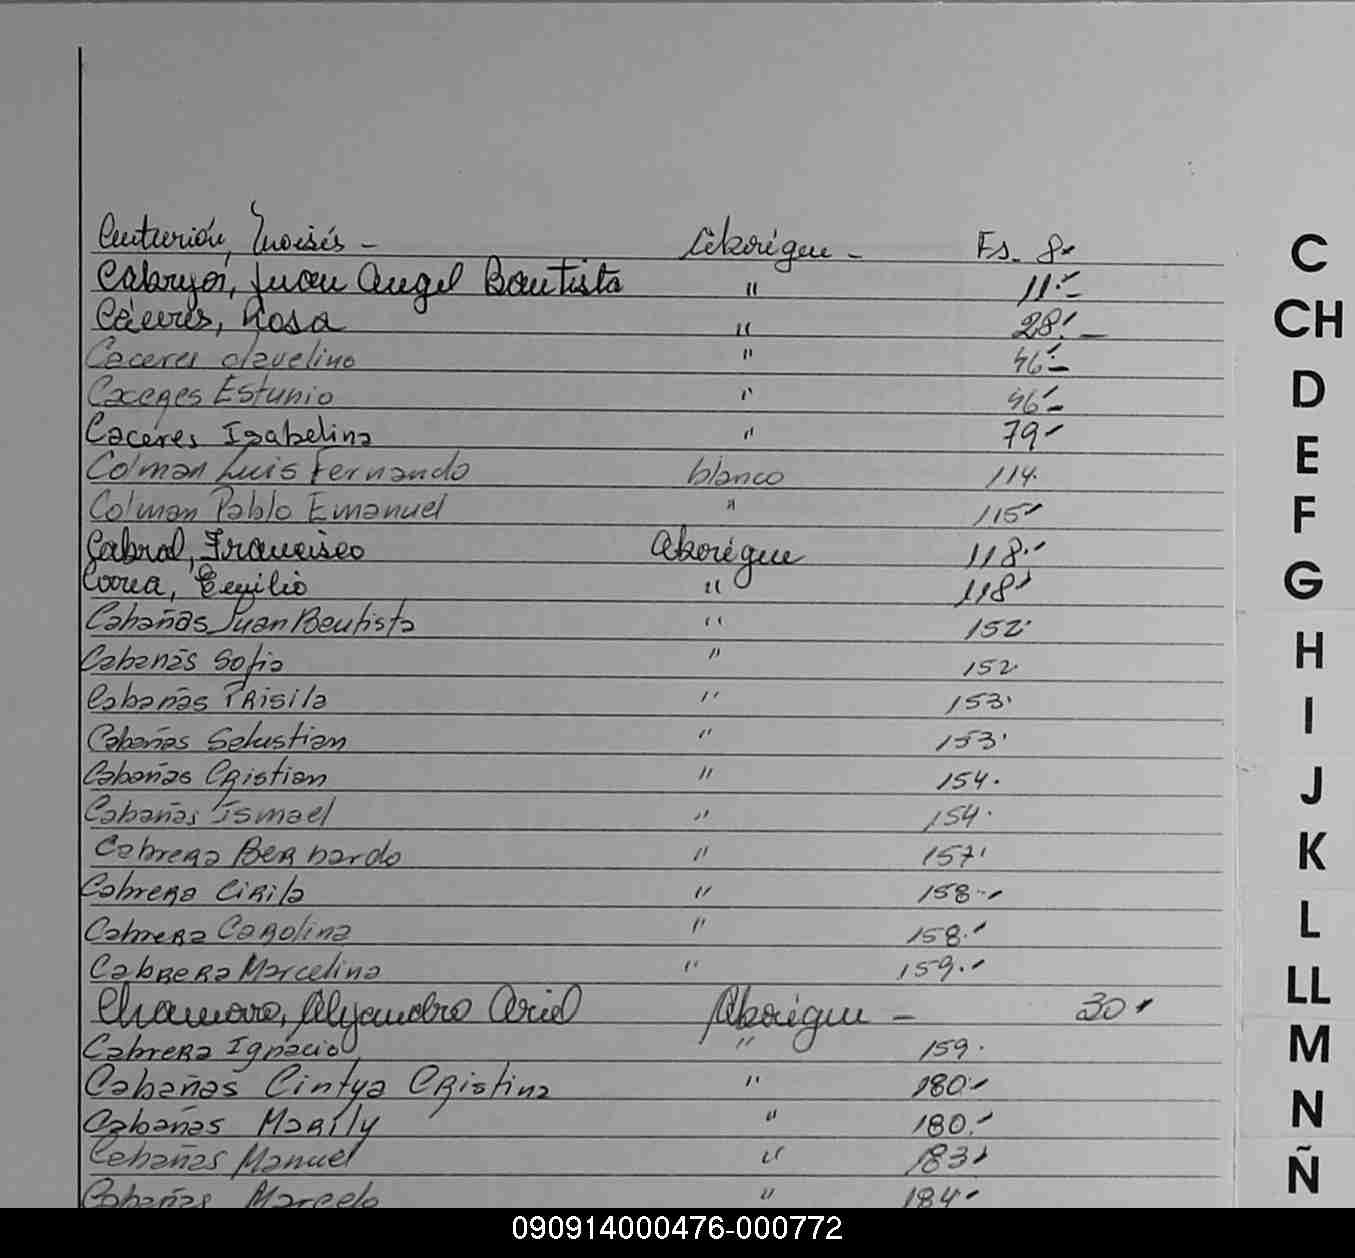 Centurión, Moisés - Aborigen - Fs. 8-
Cabryer, Juan Angel Bautista " 11.-
Cáceres, Rosa " 28.-
Caceres clavelino " 46.-
Caceges Estunio " 46.-
Caceres Isabelina " 79-
Colman Luis Fernando blanco 114.
Colman Pablo Emanuel " 115-
Cabral, Francisco Aborigen 118.-
Correa, Emilio " 118-
Cabañas Juan Bautista " 152.
Cabanãs Sofia " 152
Cabañas PRisila " 153.
Cabañas Salustian " 153.
Cabañas CRistian " 154.
Cabañas Ismael " 154.
CabreRa BeRnardo " 157.
CabreRa CiRila " 158.-
CabreRa CaRolina " 158.-
CabReRa Marcelina " 159.-
Chamorro, Alejandro Ariel Aborigen - 30-
CabreRa Ignacio " 159.
Cabañas Cintya CRistina " 180.-
Cabañas MaRíly " 180.-
Cabañas Manuel " 183-
Cabañas Marcelo " 184.-
C
CH
D
E
F
G
H
I
J
K
L
LL
M
N
Ñ
090914000476-000772